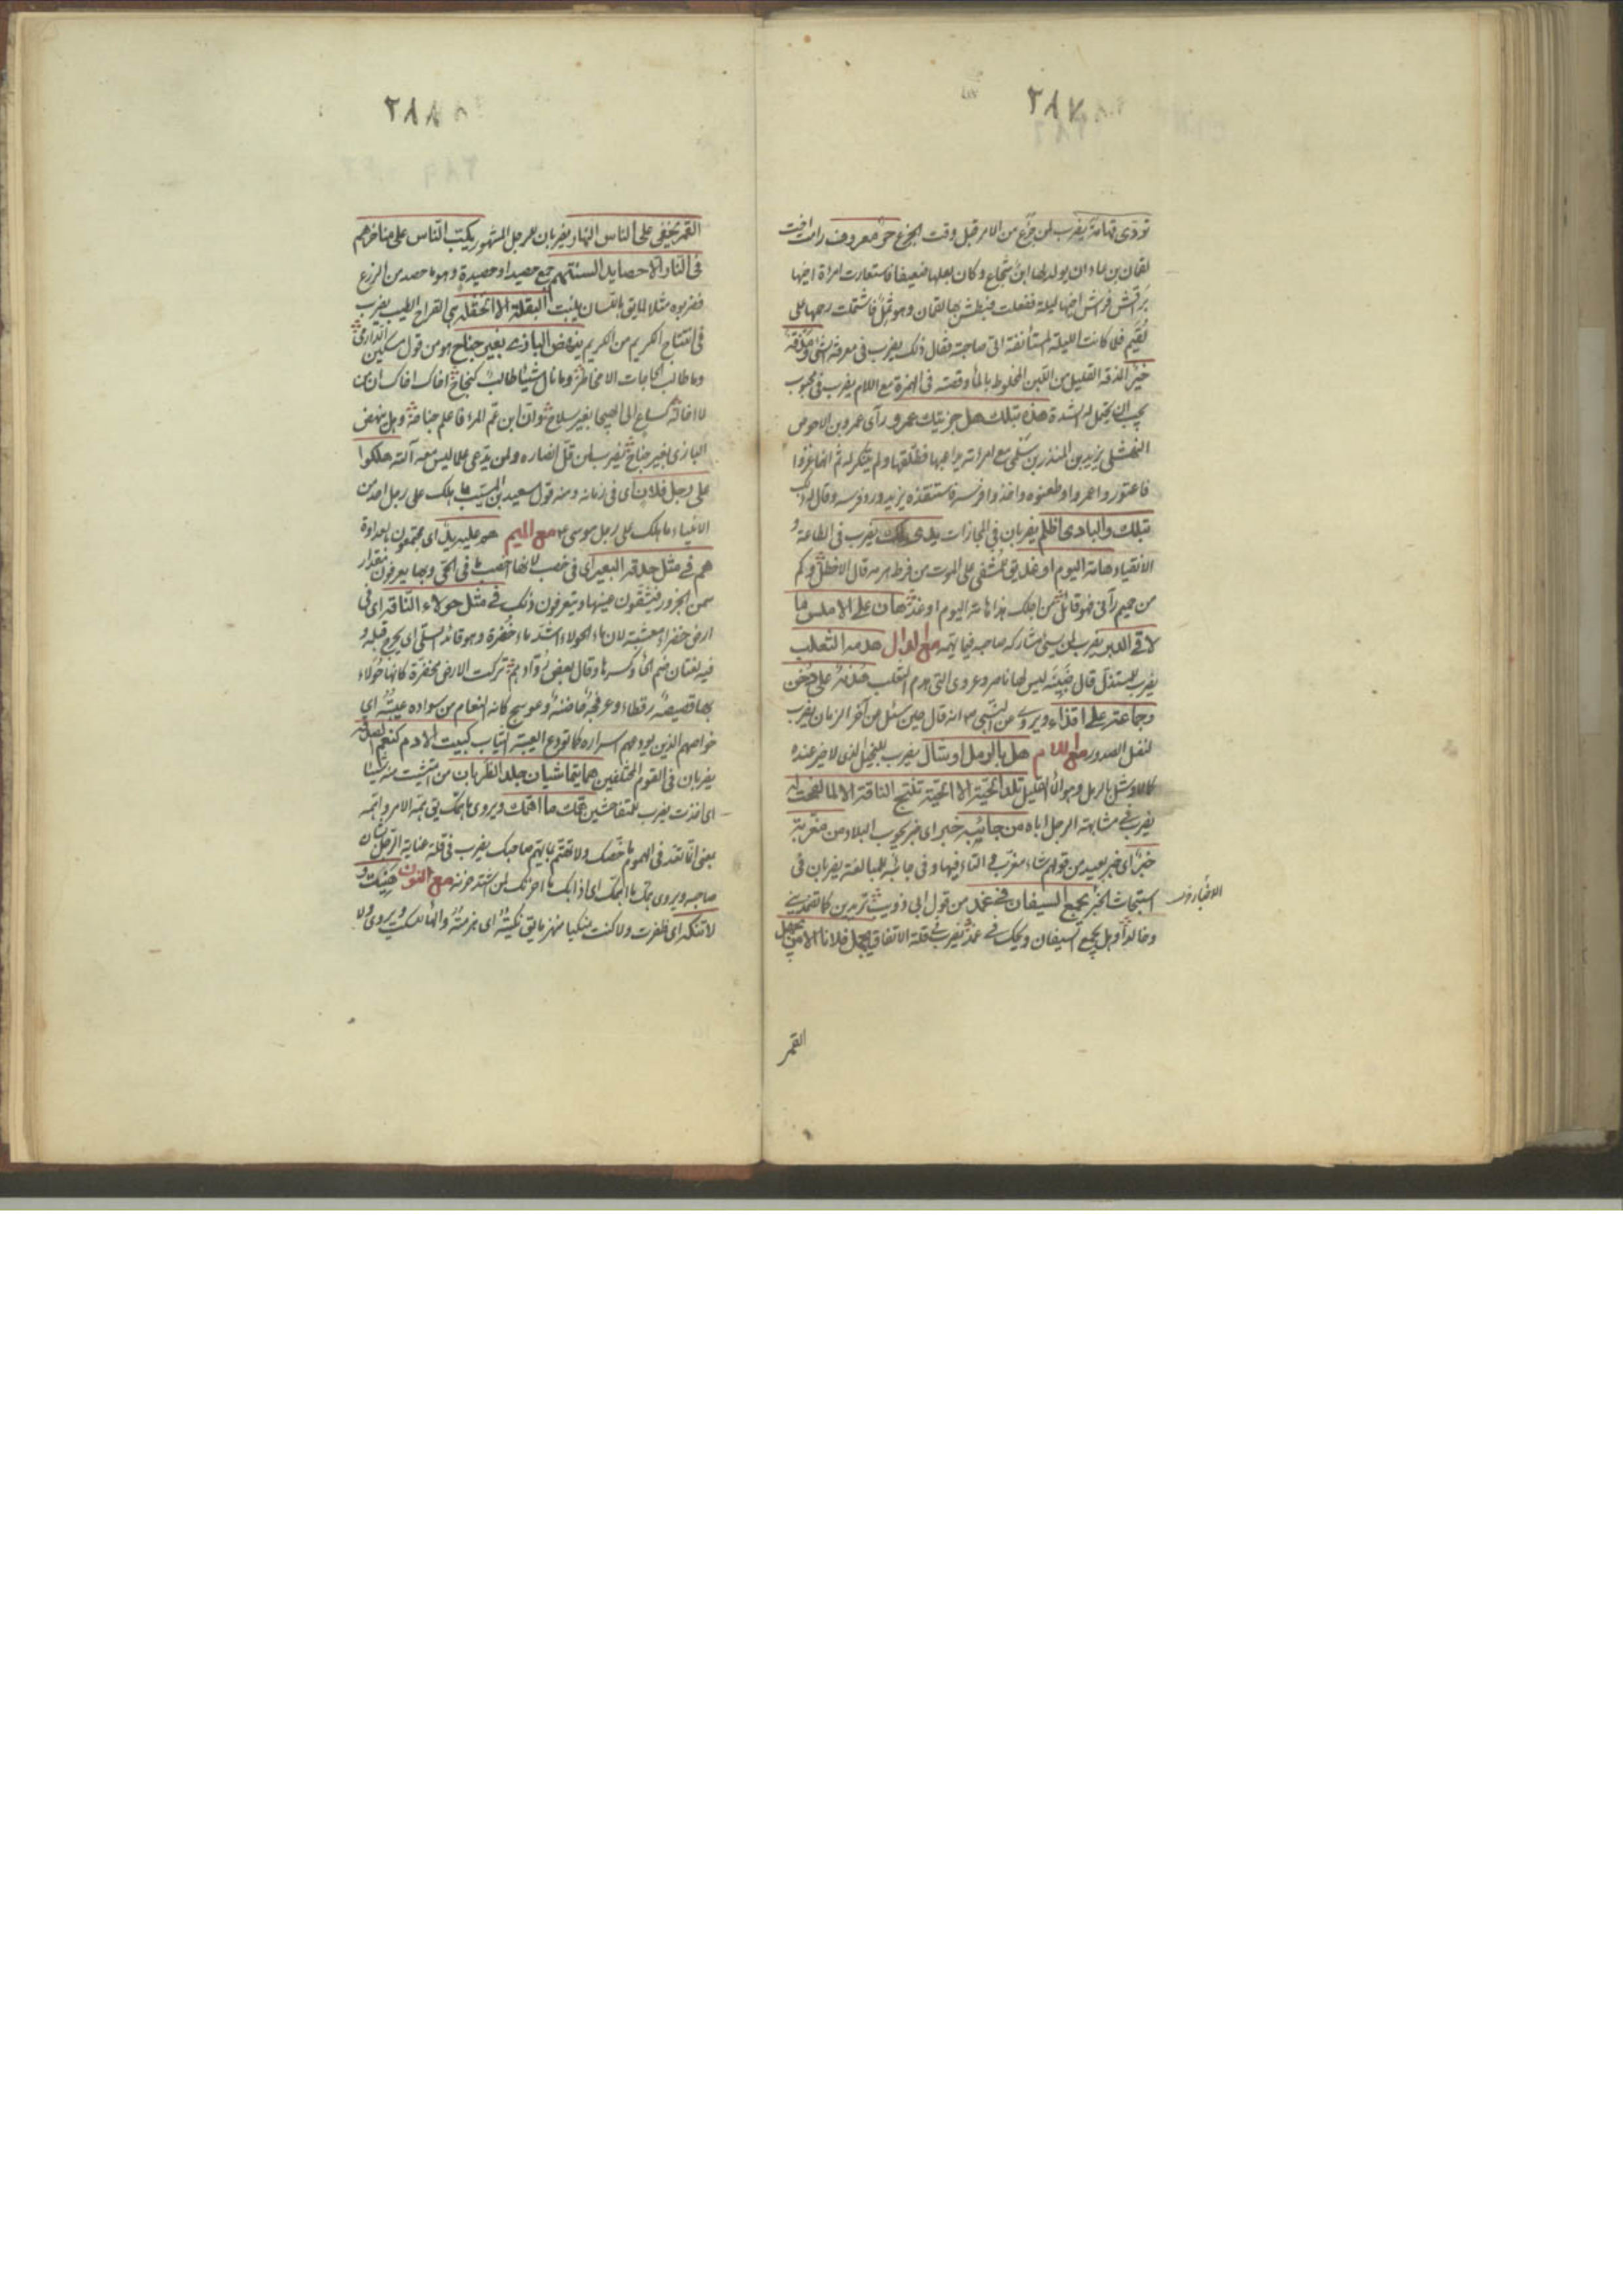 ٢٨٧
تؤدى قهامة يضرب لمن جزع من الامر قبل وقت الجزع حر معروف رامت اخت
لقمان بن عاد ان يولد لها ابن شجاع وكان بعلها ضعيفا فاستعارت امرأة اخيها
فراش اخيها ليلة ففعلت فبطش بها لقمان وهو ثمل فاشتملت رحمها على
لقيم فلما كانت الليلة المستأنفة اتى صاحبته فقال ذلك يضرب فى معرفة
خير المذقة القليل من اللبن المخلوط بالماء وقصته فى الهمزة مع اللام يضرب فى محبوب
يجب ان يحتمل له الشدة هذه بتلك هل جزيتك عمرو رأى عمرو بن الاحوص
النهشلى يزيد بن المنذر بن سلمى مع امرأته يداعبها فطلقها ولم يتنكر له ثم انهما غزوا
فاعتور واعمروا وطعنوه واخذوا فرسه فاستنقذه يزيد ورد فرسه وقال له ذلك
بتلك والبادى اظلم يضربان فى المجازات يضرب فى الطاعة و
الانقياد هامة اليوم او غد يق للمشفى على الموت من فرط هرمه قال الاخطل وكم
من حميم رآنى فهو قائل من اجلك هذا هامة اليوم او غد هان على الاملس ما
لاقى الدبر يضرب لمن يسئ مشاركة صاحبه فيما يهمه مع الدال هدمه الثعلب
يضرب للمستذل قال ليس لها ناصر وعروى التى هدم الثعلب هدنة على دخن
وجماعة على اقذاء ويروى عن النبى انه قال حين سئل عن آخر الزمان يضرب
لنغل الصدور مع اللام هل بالرمل اوشال يضرب للبخيل الذى لا خير عنده
كما لا وشل بالرمل وهو الماء القليل تلد الحية الا الحية تنتج الناقة الا لما لقحت له
يضرب فى مشابهة الرجل اباه من جائبة خبر اى خبر يجوب البلاد من مغربة
خبر اى خبر بعيد من قولهم شاء مغرب والتاء فيها وفى جائبة للمبالغة يضربان فى
استجاث الخبر يجمع السيفان فى غمد من قول ابى ذويب تريدين كما تضمدينى
وخالدا وهل يجمع السيفان ويحك فى غمد يضرب فى قلة الاتفاق يجهل فلانا الا من يجهل
القمر
٢٨٨
القمر يخفى على الناس النهار يضربان للرجل المشهور يكب الناس على مناخرهم
فى النار الا حصايد السنتهم جمع حصيد او حصيدة وهو ما حصد من الزرع
فضربوه مثلا لما يق باللسان ينبت البقلة الا الحقلة هى القراح الطيب يضرب
فى انتتاج الكريم من الكريم ينهض البازى بغير جناح هو من قول مسكين الدارمى
وما طالب الحاجات الا مخاطر وما نال شيئا طالب كنجاح اخاك اخاك ان من
لا اخا له كساع الى الهيجا بغير سلاح وان ابن عم المرء فاعلم جناحه وهل ينهض
البازى بغير جناح يضرب لمن قل انصاره ولمن يدعى علما ليس معه آلته هلكوا
على رجل فلان اى فى زمانه ومنه قول سعيد بن المسيب ما هلك على رجل احد من
الانبياء ما هلك على رجل موسى مع الميم هم عليه يد اى مجتمعون بعداوة
هم فى مثل حدقة البعير اى فى خصب لانها اخصب ما فى الحى وبها يعرفون مقدار
سمن الجزور فيشقون عينها ويتعرفون ذلك فى مثل حولاء الناقة اى فى
ارض خضراء معشبة لان ماء الحولاء اشد ماء خضرة وهو قائد السلى اى يخرج قبله و
فيه لغتان ضم الحاء وكسرها وقال بعض روادهم تركت الارض مخضرة كانها حولاء
بها قصيصة رقطاء وعرفجة خاضبة وعوسج كانه النعام من سواده عيبته اى
خواصهم الذين يودعهم اسراره كما تودع العيبة الثياب كبيت الادم كنعم الصدقة
يضربان فى القوم المختلفين هما يتماشيان جلد الظربان من امتشيت منه شيئا
اى اخذت يضرب للمتفاحشين همك ما اهمك ويروى ما همك يق همه الامر واهمه
بمعنى اى اقعد فى الهموم ما خصك ولا تهتم بما يهم صاحبك يضرب فى قلة عناية الرجل
صاحبه ويروى همك ما اهمك اى اذابك ما احزنك لمن اشتد حزنه مع النون هنيت و
لا تنكه اى ظفرت ولا كنت منكيا منهزما يق نكيته اى هزمته والهاء للسكت ويروى ولا